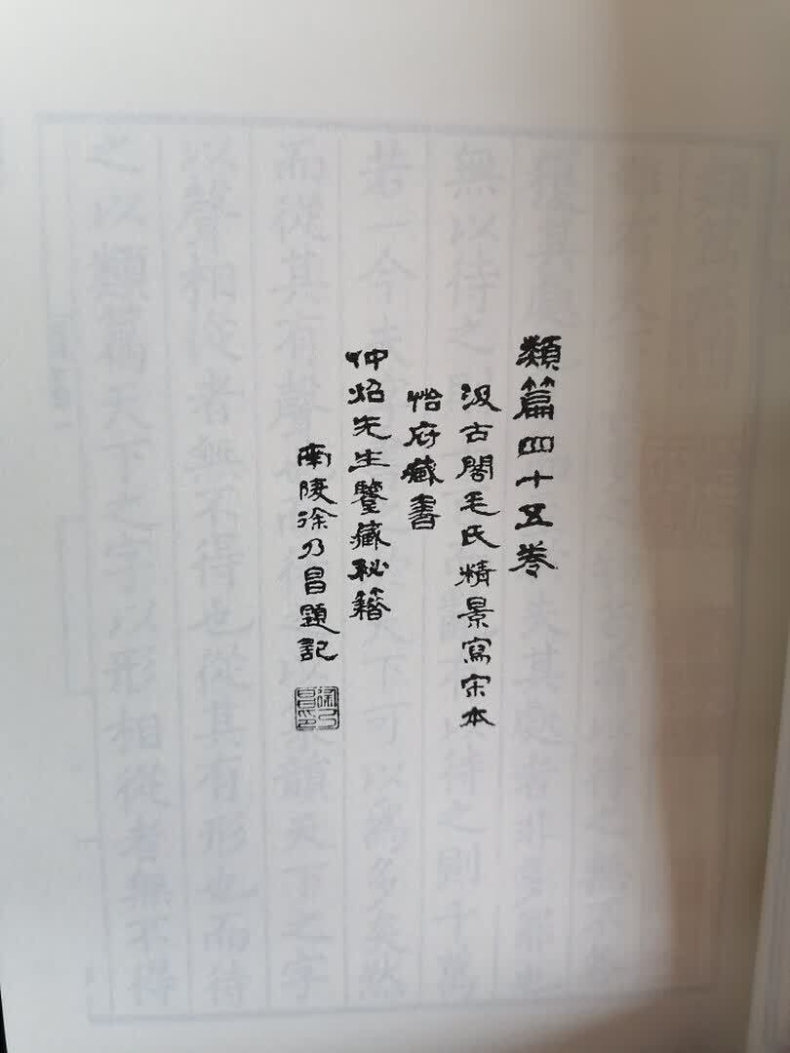 類篇四十五卷
汲古閣毛氏精景寫宋本
怡府藏書
仲炤先生鑒藏秘籍
南陵徐乃昌題記
徐乃昌印